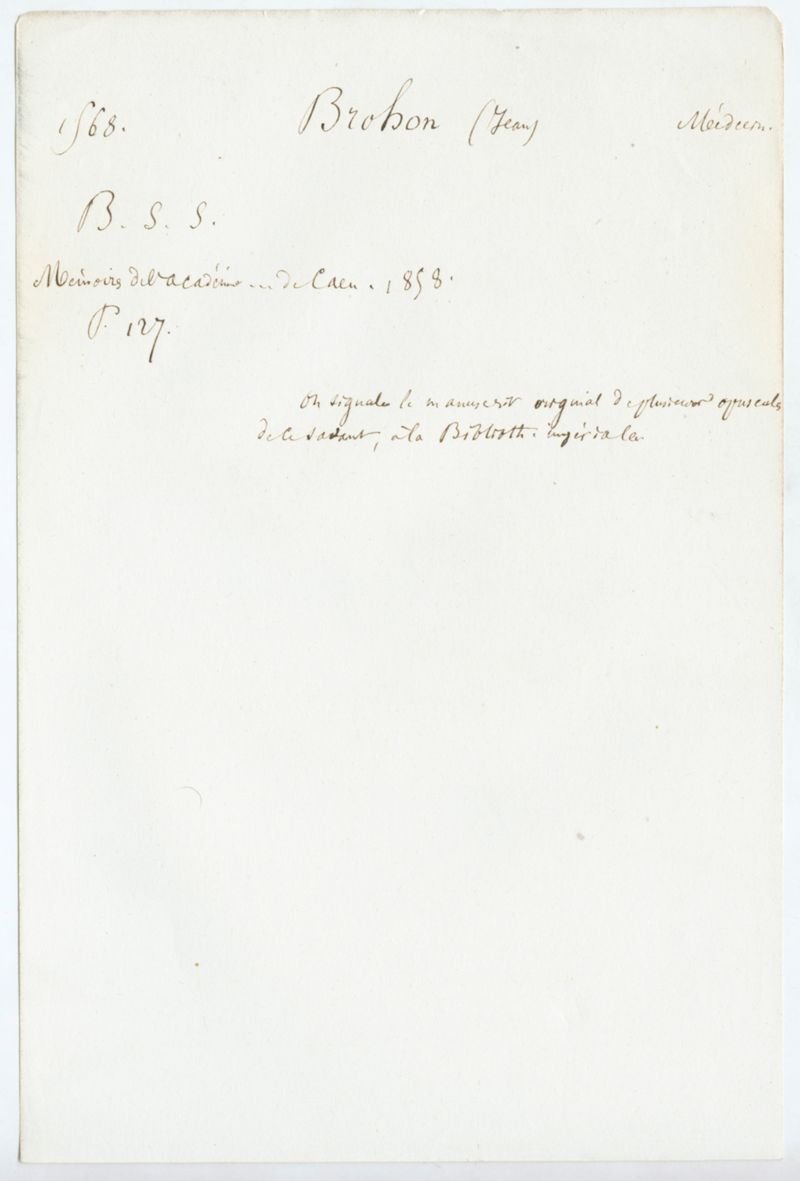 1568. Brohon (Jean) Médecin.
B. S. S.
Mémoires de l'académie ... de Caen. 1858.
P. 127.
On signale le manuscrit original de plusieurs opuscules
de ce savant, à la Biblioth. impériale.